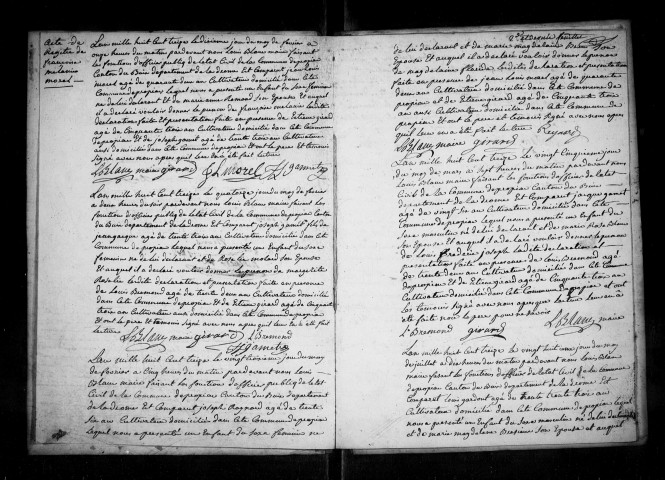 acte de
Registre de
francoise
melanie
morel
L'an mille huit Cent treize le dixieme jour du moy de fevrier a
onze heures du matin pardevant nous Louis Blanc maire faisant
les fonctions d'officier public de letat Civil de la Commune depropiac
Canton du Buis departement de la drome Et Comparut jean louis
morel agé de quarante deux ans Cultivateur domicilié dans Cete
Commune depropiac lequel nous a presenté un Enfant du Sexe feminin
ne de lui declarant et de marie anne Son Epouse Et auquel
il a declaré vouloir donner le prenom de françoise melanie lesdite
declaration faite et presentation faite en presence de Etienne girard
agé de Cinquante trois ans Cultivateur domicilié dans Cete Commune
depropiac et de joseph gamet agé de trente trois ans Cultivateur
aussi domicilié dans Cete Commune et ont le pere et temoins
Signé avec nous apres quil leur a été fait lecture
LoBlanc maire girard JL Morel JJgamet
L'an mille huit Cent treize le quatorze jour du moy de fevrier
a deux heures du soir pardevant nous Louis Blanc maire faisant les
fonctions d'officier public de letat Civil de la Commune depropiac Canton
du Buis departement de la drome Et Comparut joseph gamet fils de
agé de trente trois ans Cultivateur domicilié dans Cete
Commune de propiac lequel nous a presenté un Enfant du Sexe
feminin ne de lui declarant et de Rose Son Epouse
Et auquel il a declaré vouloir donner le prenom de margerithe
Rose les dite declaration et presentation faite en presence
de Louis Bremond agé de trente deux ans Cultivateur domicilié
dans Cete Commune depropiac Et de Etienne girard agé de Cinquante
trois ans Cultivateur aussi domicilié dans Cete Commune depropiac
Et ont le pere Et temoins Signé avec nous apres quil leur a été fait
lecture
LoBlanc maire girard L Bremond
JJgamet
L'an mille huit Cent treize le vingt troisieme jour du moy
de fevrier a Cinq heures du matin pardevant nous Louis
Blanc maire faisant les fonctions d'officier public de letat
Civil de la Commune depropiac Canton du Buis departement
de la drome Et Comparut joseph Reynard agé de trente
six ans Cultivateur domicilié dans Cete Commune depropiac
Lequel nous a presenté un Enfant du Sexe feminin ne
2e et dernier feuillet
de lui declarant et de marie magdelaine Son
Epouse et auquel il a declaré vouloir donner le prenom
de magdelaine lesdites declaration et presentation
faite en presence de jean louis morel agé de quarante
deux ans Cultivateur domicilié dans Cete Commune de
propiac et de Etienne girard agé de Cinquante trois
ans Cultivateur domicilié dans Cete Commune de
propiac et ont le pere et temoins Signé avec nous apres
quil leur en a été fait lecture
LoBlanc maire girard Reynard
L'an mille huit Cent treize le vingt Cinquieme jour
du moy de mars a sept heures du matin pardevant nous
Louis Blanc maire faisant les fonctions d'officier de letat
Civil de la Commune depropiac Canton du Buis
departement de la drome Et Comparut jacques
agé de vingt six ans Cultivateur domicilié dans Cete
Commune depropiac lequel nous a presenté un Enfant du
Sexe masculin né de lui declarant et de marie Rose Blanc
Son Epouse Et auquel il a declaré vouloir donner le prenom
de Louis joseph lesdite declaration et
presentation faite en presence de Louis Bremond agé
de trente deux ans Cultivateur domicilié dans Cete Commune
depropiac Et de Etienne girard agé de Cinquante trois ans
Cultivateur domicilié dans Cete Commune depropiac et ont
les temoins Signé avec nous apres que lecture leur en a
été faite non le pere pour ne savoir
L Bremond girard LoBlanc maire
L'an mille huit Cent treize le vingt huit jour du moy
de juillet a dix heures du matin pardevant nous Louis Blanc
maire faisant les fonctions d'officier de letat Civil de la Commune
depropiac Canton du Buis departement de la drome Et
Comparut Louis agé de trente trois ans
Cultivateur domicilié dans Cete Commune depropiac lequel
nous a presenté un Enfant du Sexe masculin né de lui declarant
et de marie magdelaine Son Epouse et auquel